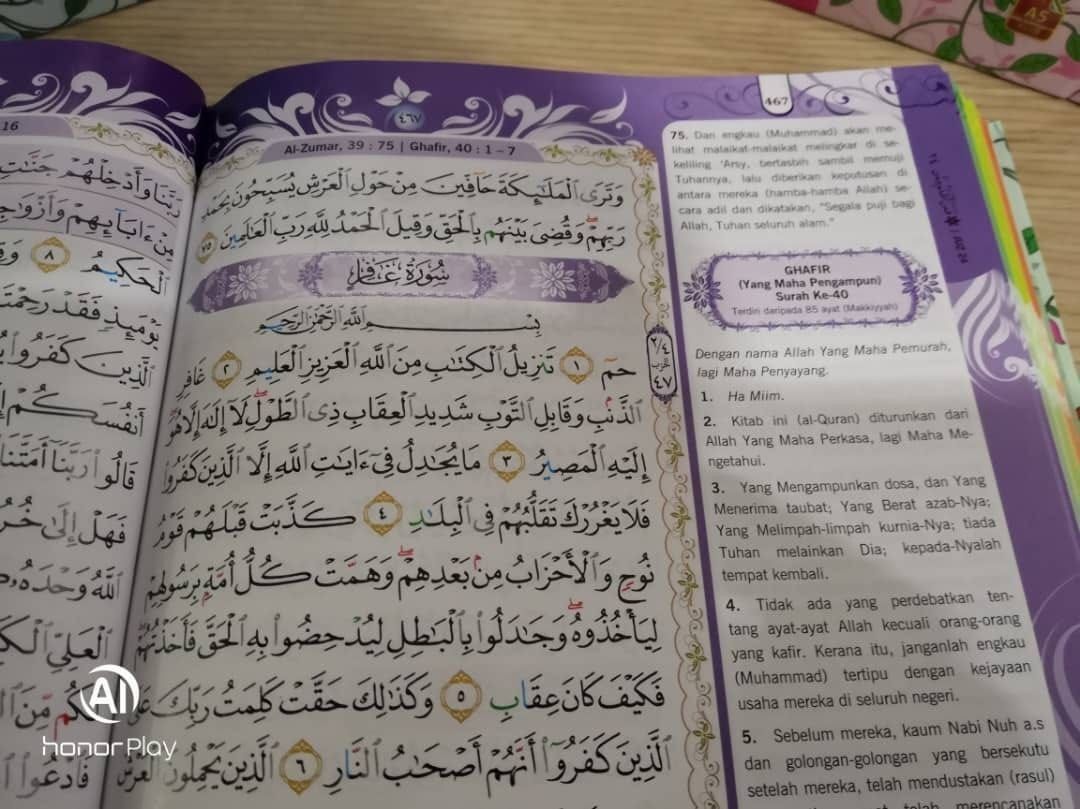 467
٤٦٧
Al-Zumar, 39 : 75 | Ghafir, 40 : 1 – 7
وَتَرَى ٱلْمَلَٰٓئِكَةَ حَآفِّينَ مِنْ حَوْلِ ٱلْعَرْشِ يُسَبِّحُونَ بِحَمْدِ
رَبِّهِمْ وَقُضِىَ بَيْنَهُم بِٱلْحَقِّ وَقِيلَ ٱلْحَمْدُ لِلَّهِ رَبِّ ٱلْعَٰلَمِينَ ٧٥
سُورَةُ غَافِرٍ
بِسْمِ ٱللَّهِ ٱلرَّحْمَٰنِ ٱلرَّحِيمِ
حمٓ ١ تَنزِيلُ ٱلْكِتَٰبِ مِنَ ٱللَّهِ ٱلْعَزِيزِ ٱلْعَلِيمِ ٢ غَافِرِ
ٱلذَّنۢبِ وَقَابِلِ ٱلتَّوْبِ شَدِيدِ ٱلْعِقَابِ ذِى ٱلطَّوْلِ لَآ إِلَٰهَ إِلَّا هُوَ
إِلَيْهِ ٱلْمَصِيرُ ٣ مَا يُجَٰدِلُ فِىٓ ءَايَٰتِ ٱللَّهِ إِلَّا ٱلَّذِينَ كَفَرُوا۟
فَلَا يَغْرُرْكَ تَقَلُّبُهُمْ فِى ٱلْبِلَٰدِ ٤ كَذَّبَتْ قَبْلَهُمْ قَوْمُ
نُوحٍ وَٱلْأَحْزَابُ مِنۢ بَعْدِهِمْ وَهَمَّتْ كُلُّ أُمَّةٍۭ بِرَسُولِهِمْ
لِيَأْخُذُوهُ وَجَٰدَلُوا۟ بِٱلْبَٰطِلِ لِيُدْحِضُوا۟ بِهِ ٱلْحَقَّ فَأَخَذْتُهُمْ
فَكَيْفَ كَانَ عِقَابِ ٥ وَكَذَٰلِكَ حَقَّتْ كَلِمَتُ رَبِّكَ عَلَى
ٱلَّذِينَ كَفَرُوٓا۟ أَنَّهُمْ أَصْحَٰبُ ٱلنَّارِ ٦ ٱلَّذِينَ يَحْمِلُونَ ٱلْعَرْشَ
٢/٤
الحزب
٤٧
75. Dan engkau (Muhammad) akan me-
lihat malaikat-malaikat melingkar di se-
keliling 'Arsy, bertasbih sambil memuji
Tuhannya, lalu diberikan keputusan di
antara mereka (hamba-hamba Allah) se-
cara adil dan dikatakan, "Segala puji bagi
Allah, Tuhan seluruh alam."
GHAFIR
(Yang Maha Pengampun)
Surah Ke-40
Terdiri daripada 85 ayat (Makkiyyah)
Dengan nama Allah Yang Maha Pemurah,
lagi Maha Penyayang.
1. Ha Miim.
2. Kitab ini (al-Quran) diturunkan dari
Allah Yang Maha Perkasa, lagi Maha Me-
ngetahui.
3. Yang Mengampunkan dosa, dan Yang
Menerima taubat; Yang Berat azab-Nya;
Yang Melimpah-limpah kurnia-Nya; tiada
Tuhan melainkan Dia; kepada-Nyalah
tempat kembali.
4. Tidak ada yang perdebatkan ten-
tang ayat-ayat Allah kecuali orang-orang
yang kafir. Kerana itu, janganlah engkau
(Muhammad) tertipu dengan kejayaan
usaha mereka di seluruh negeri.
5. Sebelum mereka, kaum Nabi Nuh a.s
dan golongan-golongan yang bersekutu
setelah mereka, telah mendustakan (rasul)
telah merencanakan
16
رَبَّنَا وَأَدْخِلْهُمْ جَنَّٰتِ
مِنْ ءَابَآئِهِمْ وَأَزْوَٰجِ
ٱلْحَكِيمُ ٨ وَقِ
يَوْمَئِذٍ فَقَدْ رَحِمْتَهُ
ٱلَّذِينَ كَفَرُوا۟
أَنفُسَكُمْ
قَالُوا۟ رَبَّنَآ أَمَتَّنَا
فَهَلْ إِلَىٰ خُرُ
ٱللَّهُ وَحْدَهُۥ
ٱلْعَلِىِّ ٱلْكَ
مِّنَ
فَٱدْعُوا۟
A5
AI
honor Play